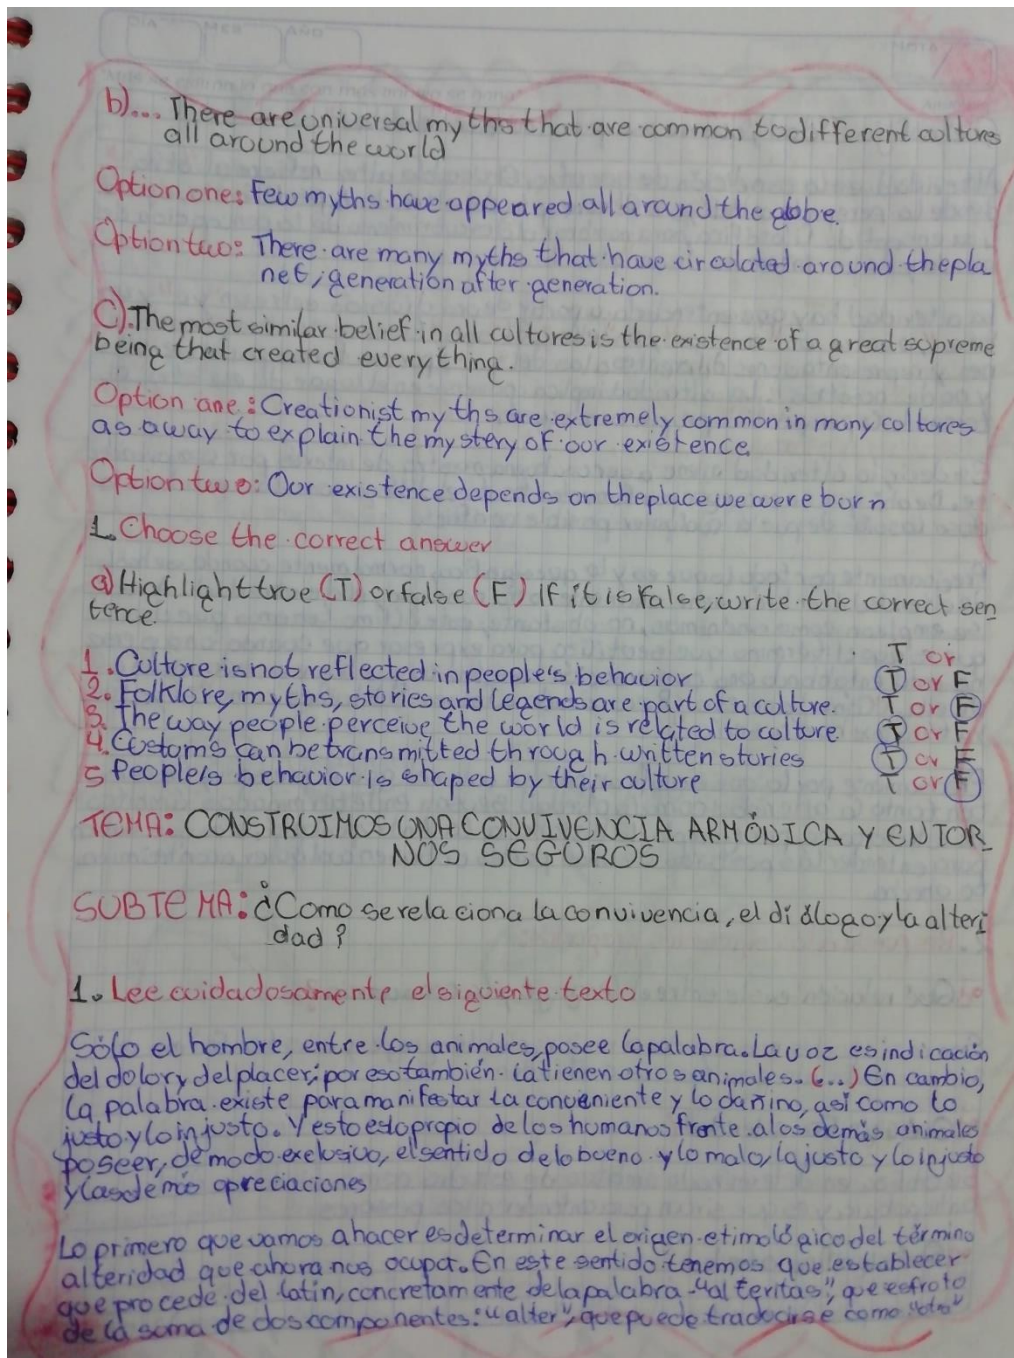 b)... There are universal myths that are common to different cultures
all around the world
Option one: Few myths have appeared all around the globe.
Option two: There are many myths that have circulated around the pla
net, generation after generation.
C). The most similar belief in all cultures is the existence of a great supreme
being that created everything.
Option one: Creationist myths are extremely common in many cultures
as a way to explain the mystery of our existence
Option two: Our existence depends on the place we were born
1. Choose the correct answer
a) Highlight true (T) or false (F) if it is false, write the correct sen
tence.
T or
1. Culture is not reflected in people's behavior T or F
2. Folklore, myths, stories and legends are part of a culture. T or F
3. The way people perceive the world is related to culture T or F
4. Custom's can be transmitted through written stories T or F
5 People's behavior is shaped by their culture T or F
TEMA: CONSTRUIMOS UNA CONVIVENCIA ARMÓNICA Y ENTOR_
NOS SEGUROS
SUBTEMA: ¿Como se relaciona la convivencia, el diálogo y la alteri
dad?
1. Lee cuidadosamente el siguiente texto
Sólo el hombre, entre los animales, posee la palabra. La voz es indicación
del dolor y del placer; por eso también la tienen otros animales. (...) En cambio,
la palabra existe para manifestar la conveniente y lo dañino, así como lo
justo y lo injusto. Y esto es lo propio de los humanos frente a los demás animales
poseer, de modo exclusivo, el sentido de lo bueno y lo malo, lo justo y lo injusto
y las demás apreciaciones
Lo primero que vamos a hacer es determinar el origen etimológico del término
alteridad que ahora nos ocupa. En este sentido tenemos que establecer
que procede del latín, concretamente de la palabra "alteritas", que es fruto
de la suma de dos componentes: "alter", que puede traducirse como "otro"